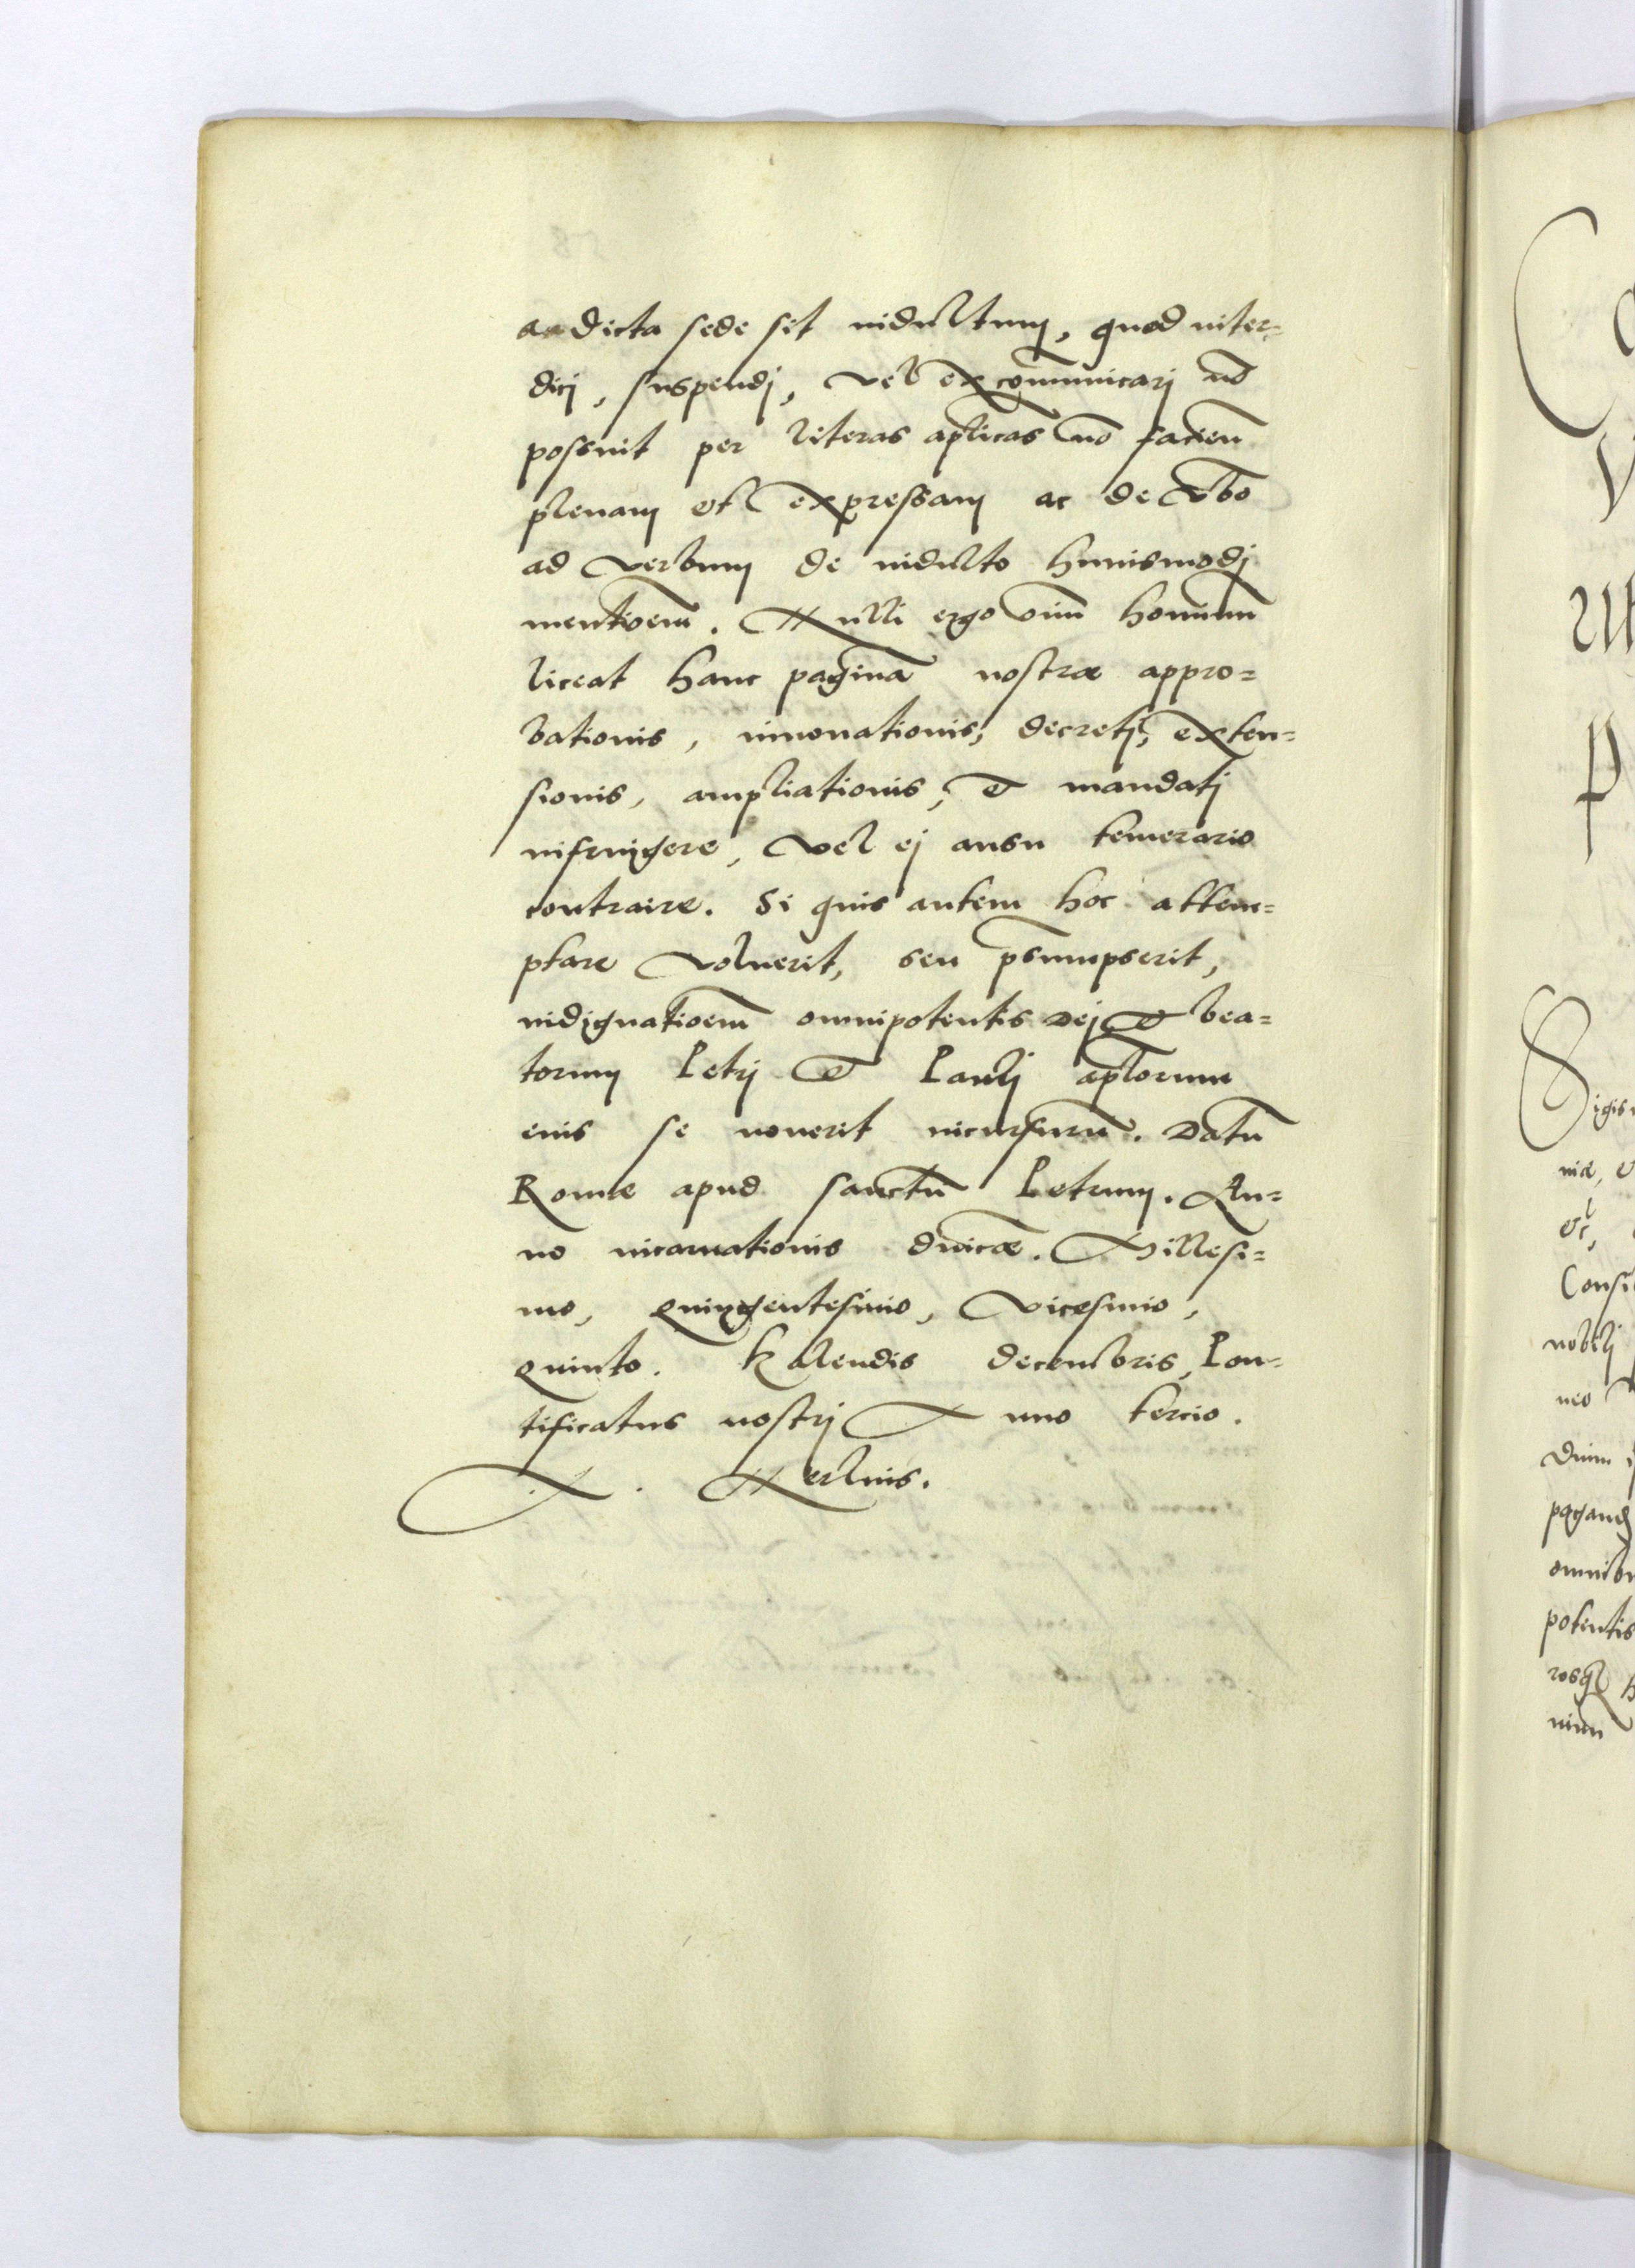 a dicta sede sit indultum, quod inter=
dici, suspendj, vel excommunicarj nō
possint per literas aplicas nō facien
plenam et expressam ac de vbo
ad verbum de indulto huiusmodj
mentioem. Nulli ergo oim hominum
liceat hanc paginā nostræ appro=
bationis, innouationis, decretj, exten=
sionis, ampliationis, et mandatj
infringere, vel ej ausu temerario
contraire. Si quis autem hoc attem=
ptare voluerit, seu psumpserit,
indignatioem omnipotentis Dej et bea=
torum Petrj et Paulj aplorum
eius se nouerit incursurū. Datū
Romæ apud sanctū Petrum. An=
no incarnationis dnicæ. Millesi=
mo, quingentesimo, vicesimo,
quinto. Kalendis decembris, Pon=
tificatus nostrj Anno tercio.
nobilj